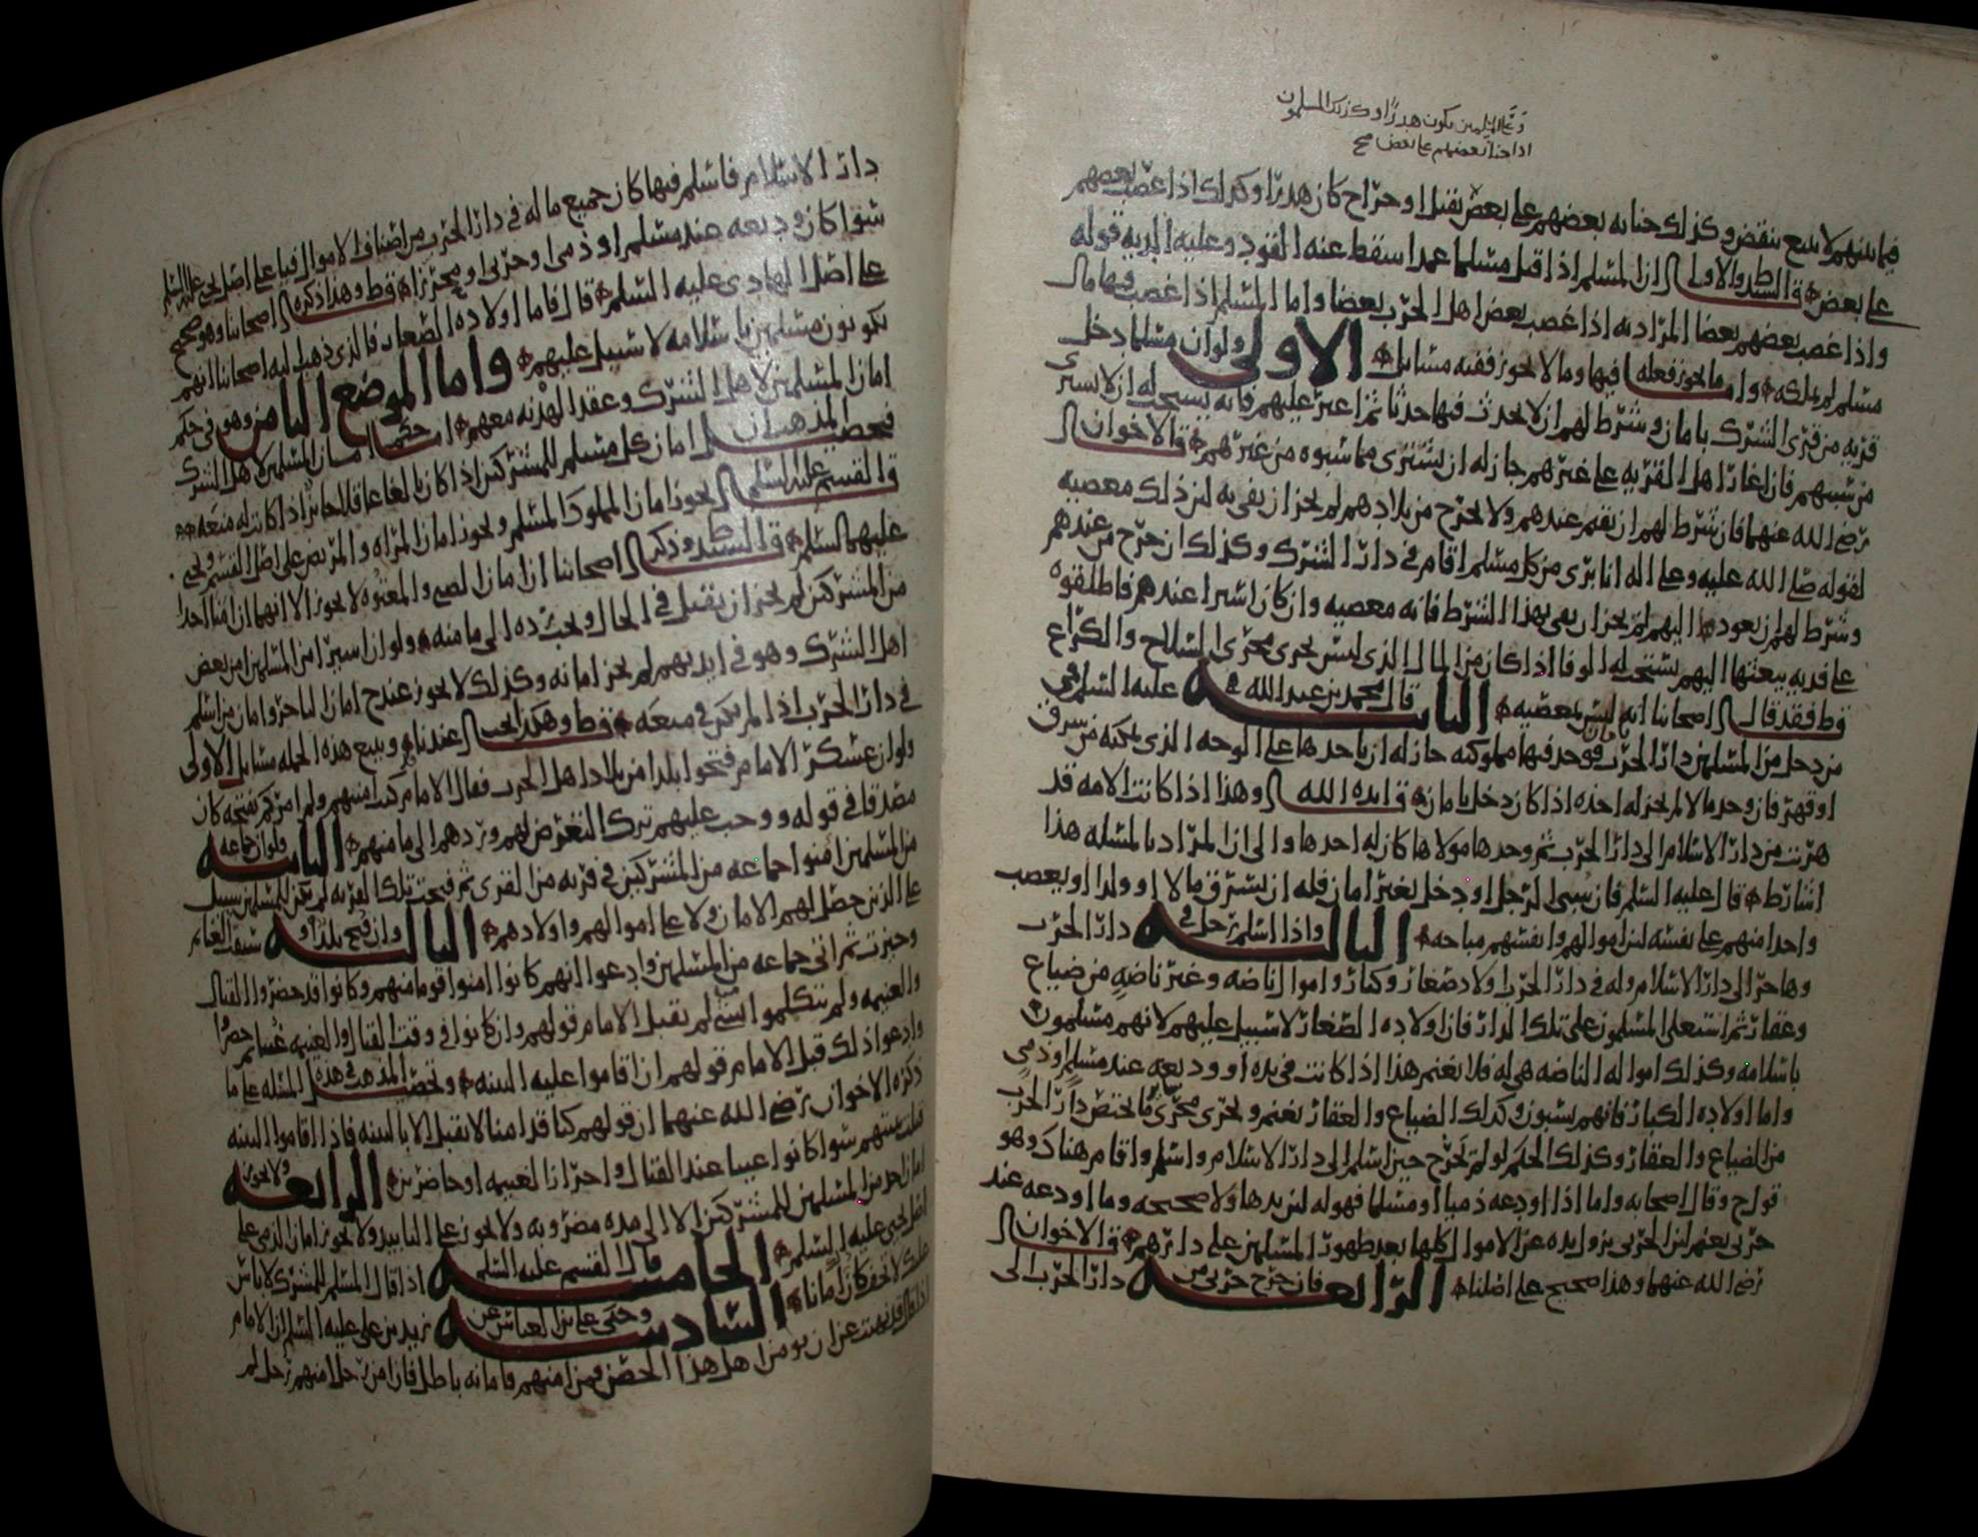 وعلى المسلمين يكون هدرا وكذلك المسلمون
اذا جنا بعضهم على بعض صح
فيما بينهم لا يتبع بنقض وكذلك جنايه بعضهم على بعض بقتل او جراح كان هدرا وكذلك اذا غصب بعضهم
على بعض قال السيد ط والاولى ان المسلم اذا قتل مسلما عمدا سقط عنه القود وعليه الديه قوله
واذا غصب بعضهم بعضا المراد به اذا غصب بعض اهل الحرب بعضا واما المسلم اذا غصب فيها مال
مسلم لم يملكه واما ما يجوز فعله فيها وما لا يجوز ففيه مسائل الاولى ولو ان مسلما دخل
قريه من قرى الشرك بامان وشرط لهم ان لا يحدث فيها حدثا ثم اغير عليهم فانه يستحب له ان لا يشترى
من سبيهم فان اغار اهل القريه على غيرهم جاز له ان يشترى مما سبوه من غيرهم قال الاخوان
رضى الله عنهما فان شرط لهم ان يقيم عندهم ولا يخرج من بلادهم لم يجز ان يفى به لان ذلك معصيه
لقوله صلى الله عليه وعلى اله انا برى من كل مسلم اقام في دار الشرك وكذلك ان خرج من عندهم
وشرط لهم ان يعود اليهم لم يجز ان يفى بهذا الشرط فانه معصيه وان كان اسيرا عندهم فاطلقوه
على فديه يبعثها اليهم يستحب له الوفا اذا كان من المال الذى ليس يجرى مجرى السلاح والكراع
قوط فقد قال اصحابنا انه ليس بمعصيه الثانيه قال محمد بن عبد الله عليه السلم في
من دخل من المسلمين دار الحرب فوجد فيها مملوكته جاز له ان ياخذها على الوجه الذى يمكنه من سرق
او قهر فان وجد مالا لم يجز له اخذه اذا كان دخل بامان قال ايده الله وهذا اذا كانت الامه قد
هربت من دار الاسلام الى دار الحرب ثم وجدها مولاها كان له اخذها والى ان المراد بالمسئله هذا
اشار ط قال عليه السلم فان سبى الرجل او دخل بغير امان فله ان يسترق مالا او ولدا او يغصب
واحدا منهم على نفسه لان اموالهم وانفسهم مباحه الثالثه واذا اسلم رجل في دار الحرب
وهاجر الى دار الاسلام وله في دار الحرب اولاد صغار وكبار واموال ناضه وغير ناضه من ضياع
وعقار ثم استعلى المسلمون على تلك الدار فان اولاده الصغار لا سبيل عليهم لانهم مسلمون
باسلامه وكذلك امواله الناضه هى له فلا يغنم هذا اذا كانت في يده او وديعه عند مسلم او ذمى
واما اولاده الكبار فانهم يسبون وكذلك الضياع والعقار يغنم ويجرى مجرى ما يختص دار الحرب
من الضياع والعقار وكذلك الحكم لو لم يخرج حين اسلم الى دار الاسلام واسلم واقام هناك وهو
قول ح وقال اصحابه واما اذا اودعه ذميا او مسلما فهو له لان يدها ولا صحيحه وما اودعه عند
حربى يغنم لان الحربى يزول يده عن الاموال كلها بعد ظهور المسلمين على دارهم قال الاخوان
رضى الله عنهما وهذا صحيح على اصلنا الرابعه فان خرج حربى من دار الحرب الى
دار الاسلام فاسلم فيها كان جميع ما له في دار الحرب من اصناف الاموال فيا على اصل يحيى عليه السلم
سوا كان وديعه عند مسلم او ذمى او حربى او محرزا قوط وهذا ذكره اصحابنا وهو صحيح
على اصل الهادى عليه السلم قال فاما اولاده الصغار فالذى ذهب اليه اصحابنا انهم
يكونون مسلمين باسلامه لا سبيل عليهم واما الموضع الثامن وهو في حكم
امان المسلمين لاهل الشرك وعقد الهدنه معهم اما حكم امان المسلمين لاهل الشرك
فتحصيل المذهب ان امان كل مسلم للمشركين اذا كان بالغا عاقلا جائز اذا كانت له منعه
قال القسم عليه السلم يجوز امان المملوك المسلم ويجوز امان المراه والمريض على اصل القسم ويحيى
عليهما السلم قال السيد ط وذكر اصحابنا ان امان الصبى والمعتوه لا يجوز الا انهما ان امنا احدا
من المشركين لم يجز ان يقتل في الحال ويجب رده الى مامنه ولو ان اسيرا من المسلمين امن بعض
اهل الشرك وهو في ايديهم لم يجز امانه وكذلك لا يجوز عند ح امان التاجر وامان من اسلم
في دار الحرب اذا لم يكن في منعه قوط وهكذا يجب عندنا ويتبع هذه الجمله مسائل الاولى
ولو ان عسكر الامام فتحوا بلدا من بلاد اهل الحرب فقال الامام كنت امنتهم ولم امركم بفتحه كان
مصدقا في قوله ووجب عليهم ترك التعرض لهم وردهم الى مامنهم الثانيه ولو ان جماعه
من المسلمين امنوا جماعه من المشركين في قريه من القرى ثم فتحت تلك القريه لم يكن للمسلمين سبيل
على الذين حصل لهم الامان ولا على اموالهم واولادهم الثالثه وان فتح بلد او سيقت الغنائم
وحيزت ثم اتى جماعه من المسلمين وادعوا انهم كانوا امنوا قوما منهم وكانوا قد حضروا القتال
والغنيمه ولم يتكلموا بشى لم يقبل الامام قولهم وان كانوا في وقت القتال والغنيمه غيبا ثم حضروا
وادعوا ذلك قبل الامام قولهم ان اقاموا عليه البينه وتحصيل المذهب في هذه المسئله على ما
ذكره الاخوان رضى الله عنهما ان قولهم كنا قد امنا لا يقبل الا بالبينه فاذا اقاموا البينه
قبلت بينتهم سوا كانوا غيبا عند القتال واحراز الغنيمه او حاضرين الرابعه ولا يجوز
امان احد من المسلمين للمشركين الا الى مده مضروبه ولا يجوز على التابيد ولا يجوز امان الذمى على
اصل يحيى عليه السلم الخامسه قال القسم عليه السلم اذا قال المسلم للمشرك لا باس
عليك لا تخف كان امانا السادسه وحكى على بن العباس عن زيد بن على عليه السلم ان الامام
اذا قال قد نهيت عن ان يومن اهل هذا الحصن فمن امنهم فامانه باطل فان امن رجلا منهم رجل لم